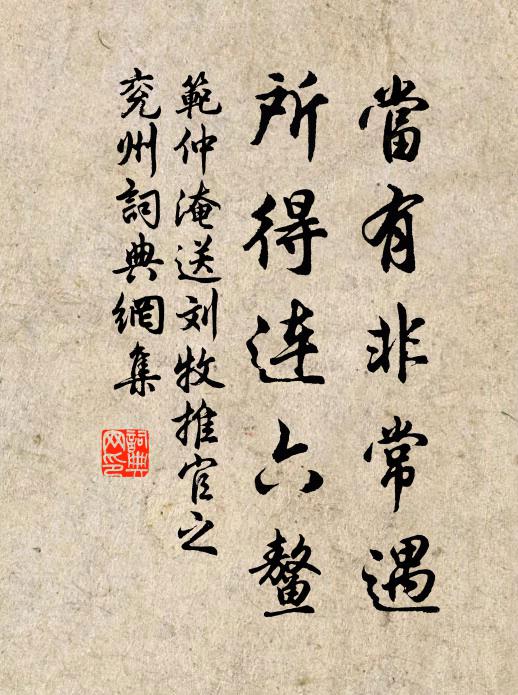 當有非常遇
所得連六鳌
範仲淹送刘牧推官之
兖州詞典網集
詞典
网印